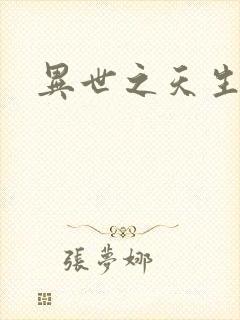 異世之天生
張夢娜